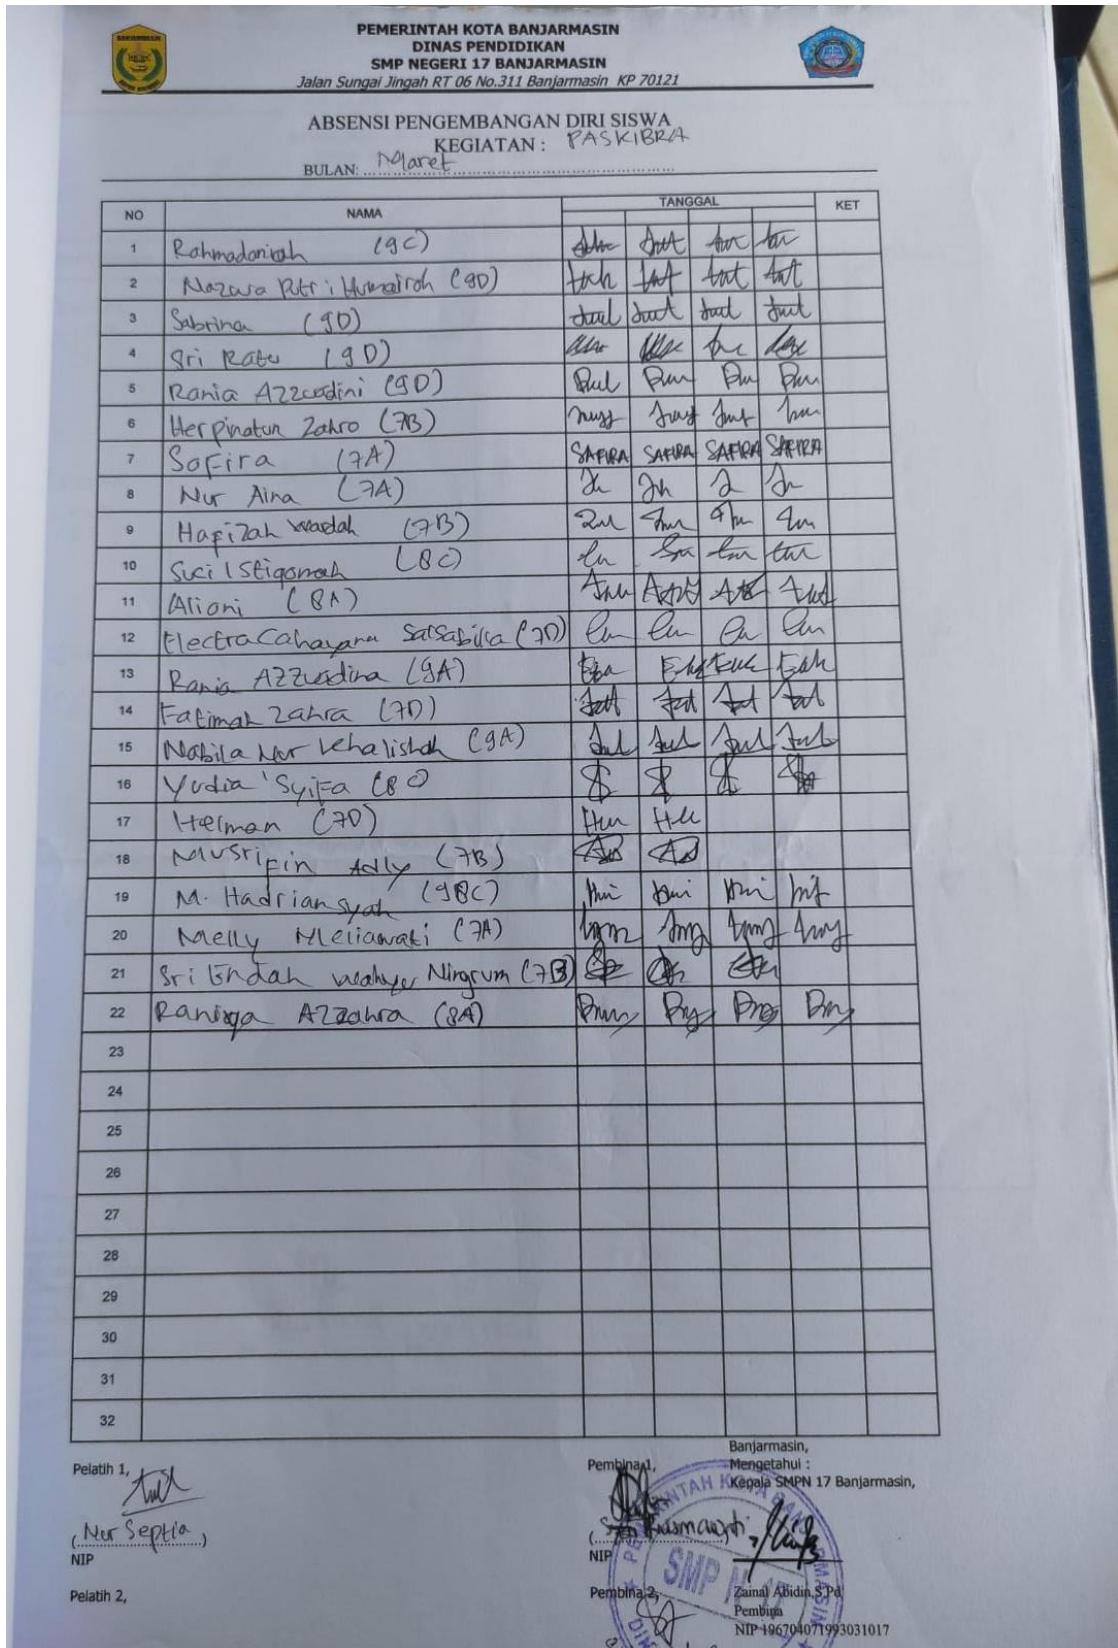 PEMERINTAH KOTA BANJARMASIN
DINAS PENDIDIKAN
SMP NEGERI 17 BANJARMASIN
Jalan Sungai Jingah RT 06 No.311 Banjarmasin KP 70121
ABSENSI PENGEMBANGAN DIRI SISWA
KEGIATAN : PASKIBRA
BULAN: Maret
NO NAMA TANGGAL KET
1 Rahmadaniah (9C)
2 Nazara Putri Humairoh (9D)
3 Sabrina (9D)
4 Sri Ratu (9D)
5 Rania Azzuadini (9D)
6 Herpinatun Zahro (7B)
7 Safira (7A) SAFIRA SAFIRA SAFIRA SAFIRA
8 Nur Aina (7A)
9 Hafizah Wardah (7B)
10 Suci Istiqomah (8C)
11 Alioni (8A)
12 Electra Cahayana Salsabilla (7D)
13 Rania Azzuadina (9A)
14 Fatimah Zahra (7D)
15 Nabila Nur Khalishah (9A)
16 Yudia Syifa (8C)
17 Helman (7D)
18 Musripin Adly (7B)
19 M. Hadriansyah
20 Melly Meliawati (7A)
21 Sri Endah Wahyu Ningrum (7B)
22 Azzahra (8A)
23
24
25
26
27
28
29
30
31
32
Banjarmasin,
Pelatih 1, Pembina 1, Mengetahui :
Kepala SMPN 17 Banjarmasin,
(Nur Septia)
NIP NIP
Pelatih 2, Pembina 2, Zainal Abidin,S.Pd
Pembina
NIP 196704071993031017
SMP N 17